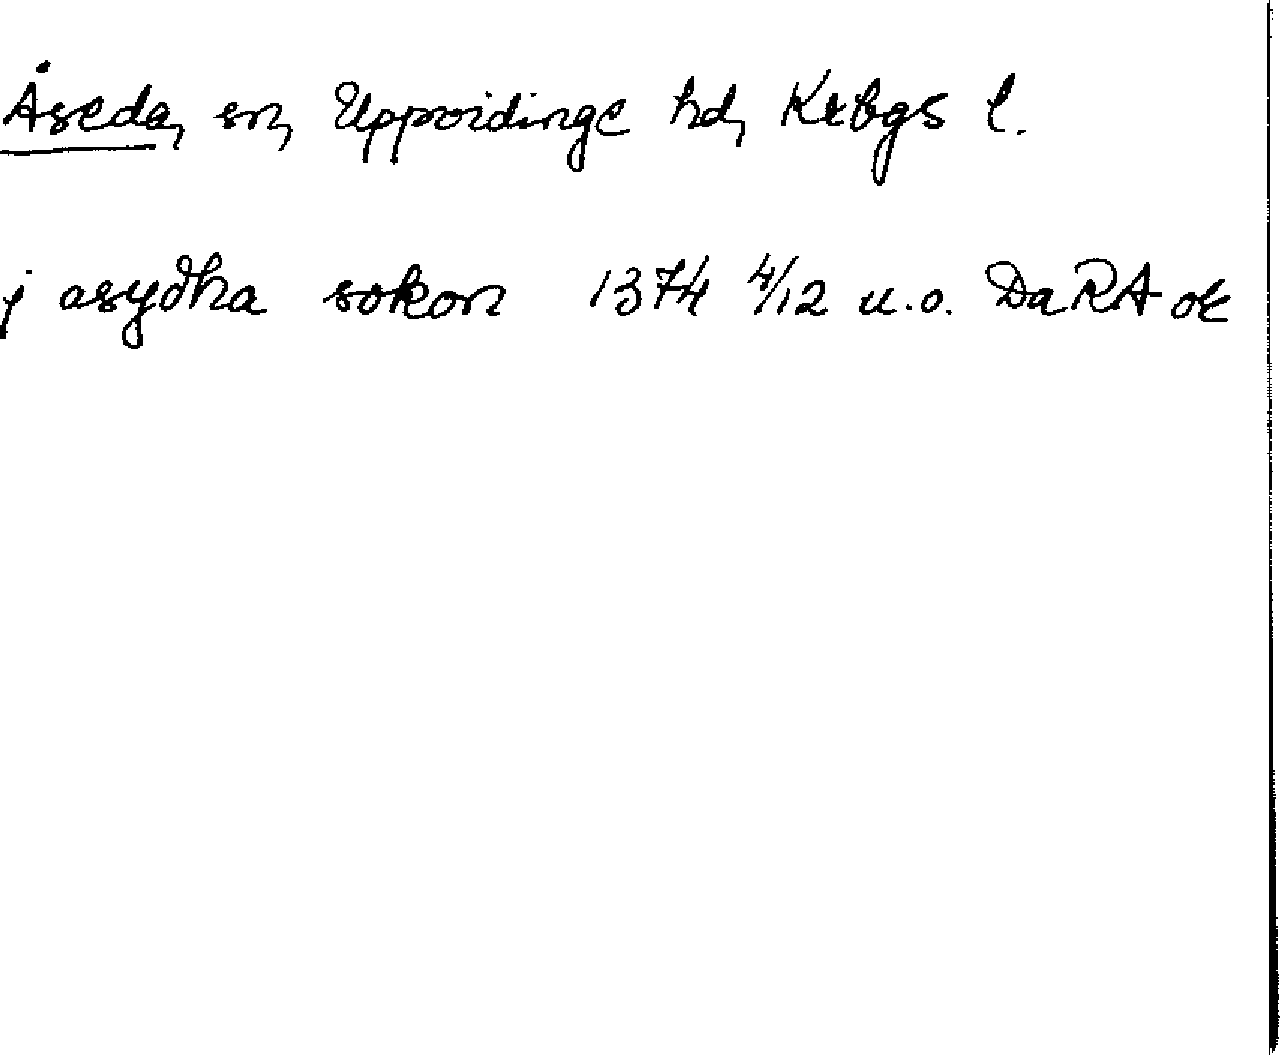 Åseda, sn, Uppvidinge hd, Krbgs l.
j asydha sokon 1374 4/12 u.o. DaRA ok